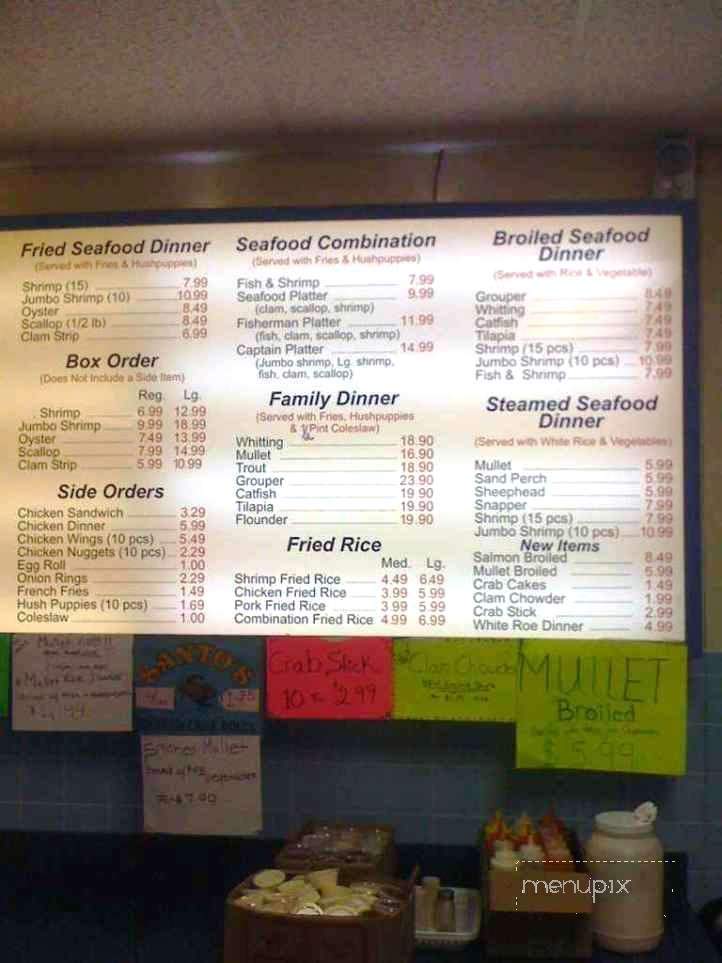 Fried Seafood Dinner
(Served with Fries & Hushpuppies)
Shrimp (15) 7.99
Jumbo Shrimp (10) 10.99
Oyster 8.49
Scallop (1/2 lb) 8.49
Clam Strip 6.99
Box Order
(Does Not Include a Side Item)
Reg. Lg.
Shrimp 6.99 12.99
Jumbo Shrimp 9.99 18.99
Oyster 7.49 13.99
Scallop 7.99 14.99
Clam Strip 5.99 10.99
Side Orders
Chicken Sandwich 3.29
Chicken Dinner 5.99
Chicken Wings (10 pcs) 5.49
Chicken Nuggets (10 pcs) 2.29
Egg Roll 1.00
Onion Rings 2.29
French Fries 1.49
Hush Puppies (10 pcs) 1.69
Coleslaw 1.00
Seafood Combination
(Served with Fries & Hushpuppies)
Fish & Shrimp 7.99
Seafood Platter 9.99
(clam, scallop, shrimp)
Fisherman Platter 11.99
(fish, clam, scallop, shrimp)
Captain Platter 14.99
(Jumbo shrimp, Lg. shrimp,
fish, clam, scallop)
Family Dinner
(Served with Fries, Hushpuppies
& Pint Coleslaw)
Whitting 18.90
Mullet 16.90
Trout 18.90
Grouper 23.90
Catfish 19.90
Tilapia 19.90
Flounder 19.90
Fried Rice
Med. Lg.
Shrimp Fried Rice 4.49 6.49
Chicken Fried Rice 3.99 5.99
Pork Fried Rice 3.99 5.99
Combination Fried Rice 4.99 6.99
Broiled Seafood
Dinner
(Served with Rice & Vegetable)
Grouper 8.49
Whitting 7.49
Catfish 7.49
Tilapia 7.49
Shrimp (15 pcs) 7.99
Jumbo Shrimp (10 pcs) 10.99
Fish & Shrimp 7.99
Steamed Seafood
Dinner
(Served with White Rice & Vegetables)
Mullet 5.99
Sand Perch 5.99
Sheephead 5.99
Snapper 7.99
Shrimp (15 pcs) 7.99
Jumbo Shrimp (10 pcs) 10.99
New Items
Salmon Broiled 8.49
Mullet Broiled 5.99
Crab Cakes 1.49
Clam Chowder 1.99
Crab Stick 2.99
White Roe Dinner 4.99
SANTO'S
Crab Stick
10 $2.99
Clam Chowder
MULLET
Broiled
$5.99
Smoked Mullet
$7.99
menupix